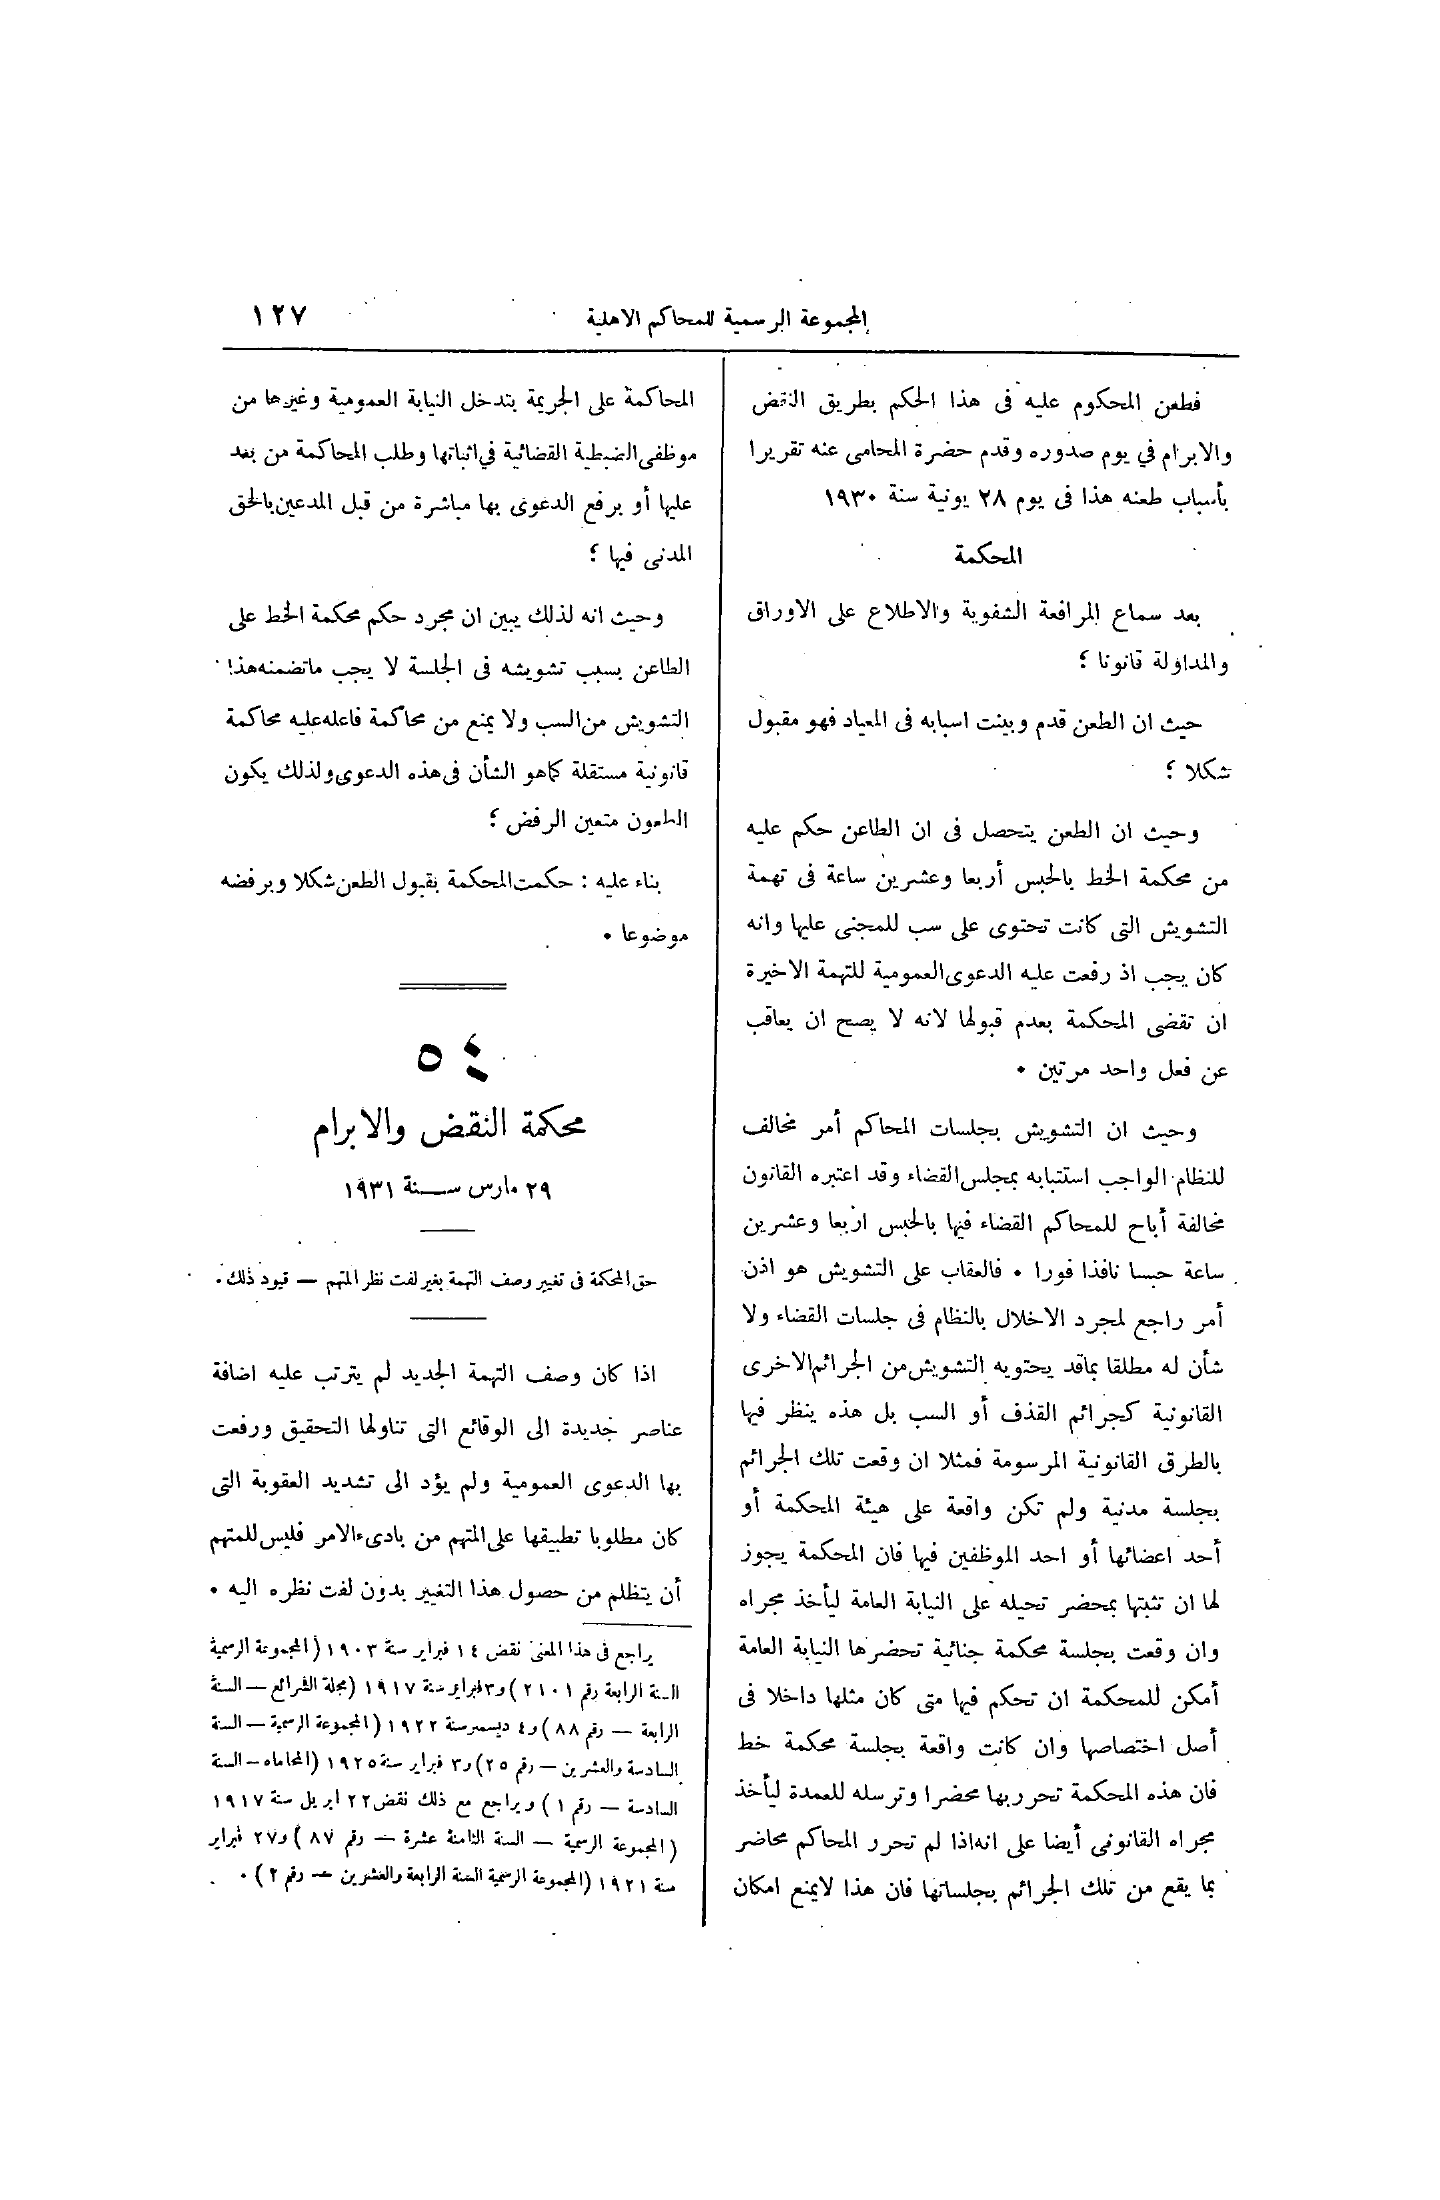 المجموعة الرسمية للمحاكم الاهلية
١٢٧
فطعن المحكوم عليه فى هذا الحكم بطريق النقض
والابرام في يوم صدوره وقدم حضرة المحامى عنه تقريرا
بأسباب طعنه هذا فى يوم ٢٨ يونية سنة ١٩٣٠
المحكمة
بعد سماع المرافعة الشفوية والاطلاع على الاوراق
والمداولة قانونا ؛
حيث ان الطعن قدم وبينت اسبابه فى المعياد فهو مقبول
شكلا ؛
وحيث ان الطعن يتحصل فى ان الطاعن حكم عليه
من محكمة الخط بالحبس أربعا وعشرين ساعة فى تهمة
التشويش التى كانت تحتوى على سب للمجنى عليها وانه
كان يجب اذ رفعت عليه الدعوى العمومية للتهمة الاخيرة
ان تقضى المحكمة بعدم قبولها لانه لا يصح ان يعاقب
عن فعل واحد مرتين .
وحيث ان التشويش بجلسات المحاكم أمر مخالف
للنظام الواجب استتبابه بمجلس القضاء وقد اعتبره القانون
مخالفة أباح للمحاكم القضاء فيها بالحبس اربعا وعشرين
ساعة حبسا نافذا فورا . فالعقاب على التشويش هو اذن
أمر راجع لمجرد الاخلال بالنظام فى جلسات القضاء ولا
شأن له مطلقا بماقد يحتويه التشويش من الجرائم الاخرى
القانونية كجرائم القذف أو السب بل هذه ينظر فيها
بالطرق القانونية المرسومة فمثلا ان وقعت تلك الجرائم
بجلسة مدنية ولم تكن واقعة على هيئة المحكمة أو
أحد اعضائها أو احد الموظفين فيها فان المحكمة يجوز
لها ان تثبتها بمحضر تحيله على النيابة العامة ليأخذ مجراه
وان وقعت بجلسة محكمة جنائية تحضرها النيابة العامة
أمكن للمحكمة ان تحكم فيها متى كان مثلها داخلا فى
أصل اختصاصها وان كانت واقعة بجلسة محكمة خط
فان هذه المحكمة تحرر بها محضرا وترسله للعمدة ليأخذ
مجراه القانونى أيضا على انه اذا لم تحرر المحاكم محاضر
بما يقع من تلك الجرائم بجلساتها فان هذا لا يمنع امكان
المحاكمة على الجريمة بتدخل النيابة العمومية وغيرها من
موظفى الضبطية القضائية في اثباتها وطلب المحاكمة من بعد
عليها أو برفع الدعوى بها مباشرة من قبل المدعين بالحق
المدنى فيها ؛
وحيث انه لذلك يبين ان مجرد حكم محكمة الخط على
الطاعن بسبب تشويشه فى الجلسة لا يجب ماتضمنه هذا
التشويش من السب ولا يمنع من محاكمة فاعله عليه محاكمة
قانونية مستقلة كما هو الشأن فى هذه الدعوى ولذلك يكون
الطعون متعين الرفض ؛
بناء عليه : حكمت المحكمة بقبول الطعن شكلا وبرفضه
موضوعا .
٥٤
محكمة النقض والابرام
٢٩ مارس سنة ١٩٣١
حق المحكمة فى تغيير وصف التهمة بغير لفت نظر المتهم — قيود ذلك .
اذا كان وصف التهمة الجديد لم يترتب عليه اضافة
عناصر جديدة الى الوقائع التى تناولها التحقيق ورفعت
بها الدعوى العمومية ولم يؤد الى تشديد العقوبة التى
كان مطلوبا تطبيقها على المتهم من بادىء الامر فليس للمتهم
أن يتظلم من حصول هذا التغيير بدون لفت نظره اليه .
يراجع فى هذا المعنى نقض ١٤ فبراير سنة ١٩٠٣ (المجموعة الرسمية
السنة الرابعة رقم ٢١٠١) و٣ فبراير سنة ١٩١٧ (مجلة الشرائع — السنة
الرابعة — رقم ٨٨) و٤ ديسمبر سنة ١٩٢٢ (المجموعة الرسمية — السنة
السادسة والعشرين — رقم ٢٥) و٣ فبراير سنة ١٩٢٥ (المحاماه — السنة
السادسة — رقم ١) ويراجع مع ذلك نقض ٢٢ ابريل سنة ١٩١٧
(المجموعة الرسمية — السنة الثامنة عشرة — رقم ٨٧) و٢٧ فبراير
سنة ١٩٢١ (المجموعة الرسمية السنة الرابعة والعشرين — رقم ٢) .